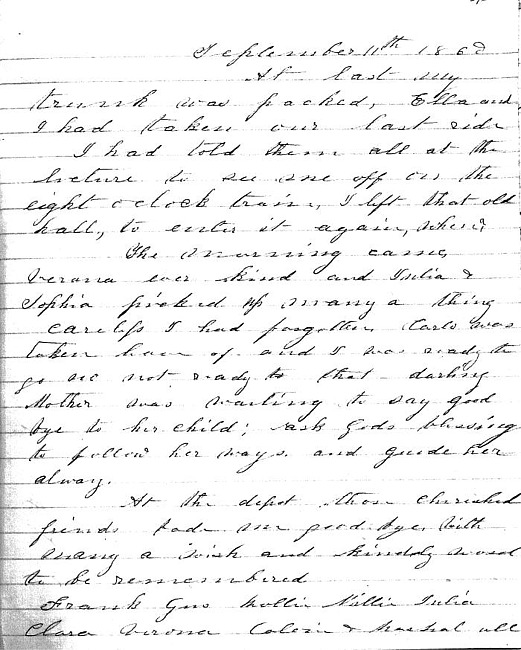 September 11th 1868
At last my
trunk was packed, Ella and
I had taken our last ride
I had told them all at the
lecture to see me off on the
eight o clock train, I left that old
hall, to enter it again, when?
The morning came,
Verona ever kind and Julia &
Sophia picked up many a thing
careless I had forgotten Carlo was
taken care of and I was ready to
go no not ready to that darling
Mother was waiting to say good
bye to her child; ask Gods blessing
to follow her ways. and guide her
alway.
At the depot those cherished
friends bade me good bye, with
many a wish and kindly word
to be remembered
Frank Gus Mollie Nellie Julia
Clara Verona Calvin & Marshal all